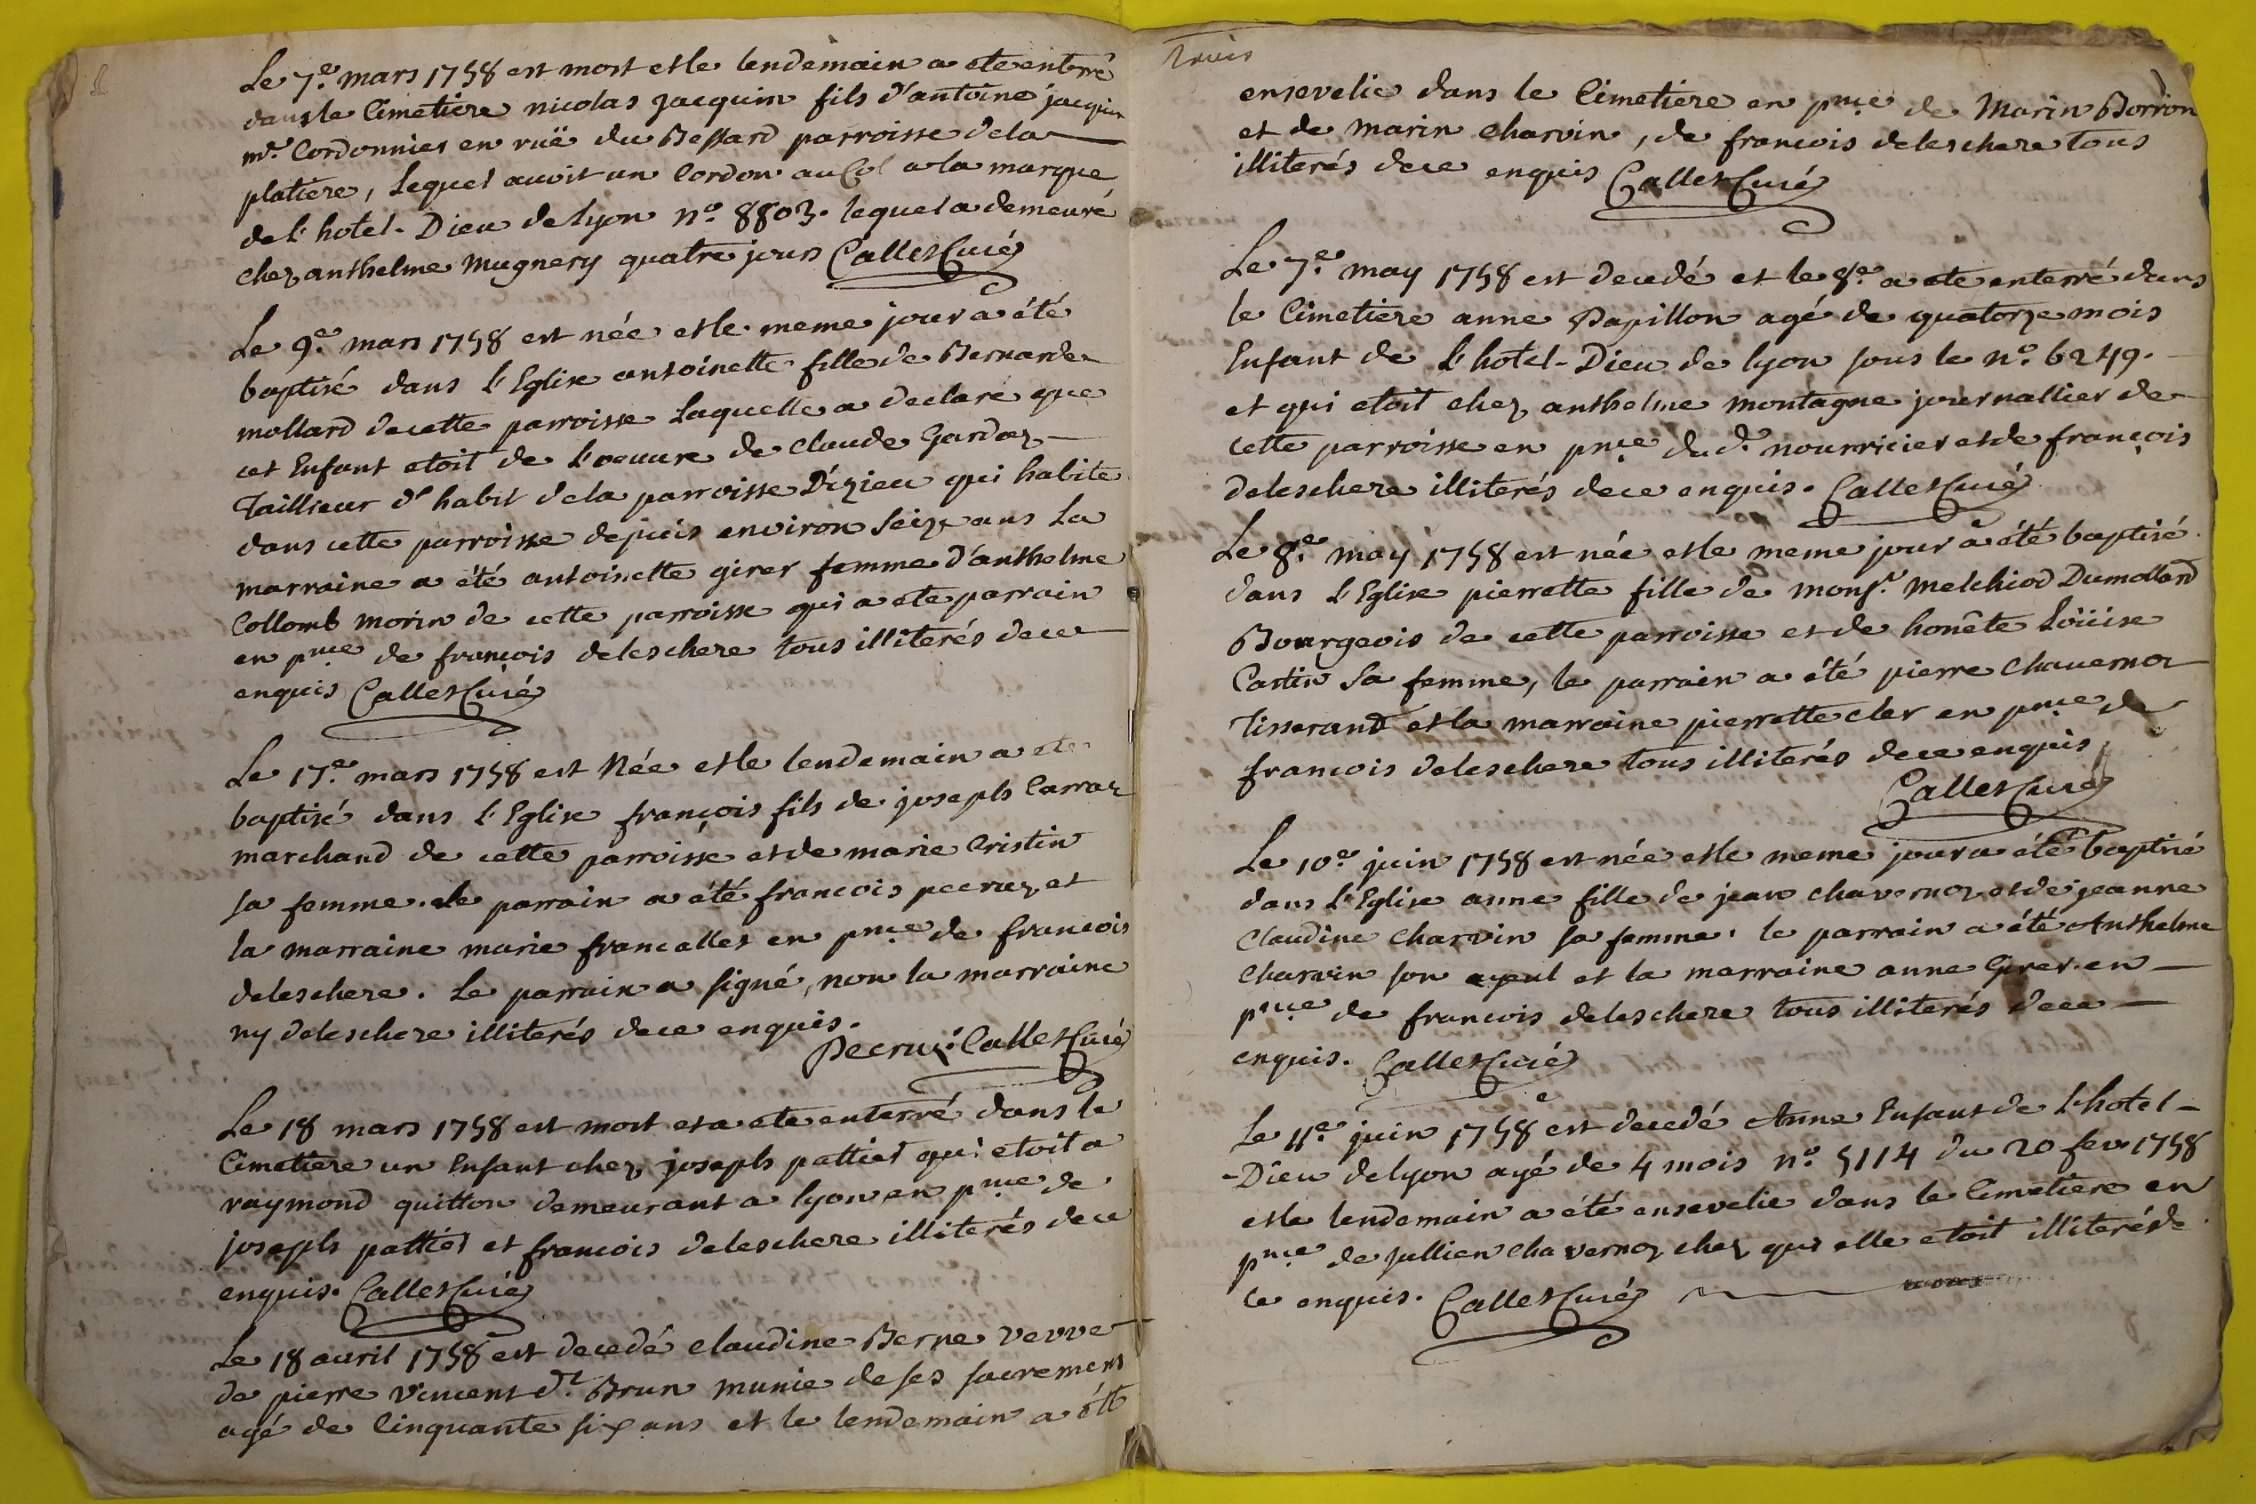 Le 7.e mars 1758 est mort et le lendemain a ete enterré
dans le Cimetiere nicolas jacquin fils d'antoine jacquin
md. Cordonnier en ruë du Bessard parroisse dela
platiere, Lequel avoit un Cordon au Col a la marque
de L'hotel-Dieu de lyon n.o 8803. lequel a demeuré
chez anthelme Mugnery quatre jours Callet Curé
Le 9.e mars 1758 est née et le meme jour a été
baptisé dans L'Eglise antoinette fille de Bernarde
mollard de cette parroisse Laquelle a declaré que
cet Enfant etoit de L'oeuvre de Claude Gardaz
Taillieur d'habit dela parroisse D'izieu qui habite
dans cette parroisse depuis environ Seize ans La
marraine a été antoinette girer femme d'anthelme
Collomb morin de cette parroisse qui a ete parrain
en pnce de francois deleschere tous illiterés dece
enquis Callet Curé
Le 17.e mars 1758 est Née et le lendemain a ete
baptisé dans L'Eglise françois fils de joseph Carraz
marchand de cette parroisse et de marie Cristin
sa femme. le parrain a été francois pecruz et
la marraine marie francallet en pnce de francois
deleschere. Le parrain a signé, non la marraine
ny deleschere illiterés dece enquis.
Pecruz Callet Curé
Le 18 mars 1758 est mort et a ete enterré dans le
Cimetiere un Enfant chez joseph pattiet qui etoit a
raymond quitton demeurant a lyon en pnce de
joseph pattiet et francois deleschere illiterés dece
enquis. Callet Curé
Le 18 avril 1758 est decedé claudine Berne vevve
de pierre vincent dt. Brun munie de ses sacremens
agé de Cinquante six ans et le lendemain a été
ensevelie dans le Cimetiere en pnce de Marin Borron
et de marin charvin, de francois deleschere tous
illiterés dece enquis Callet Curé
Le 7.e may 1758 est decedé et le 8.e a ete enterré dans
le Cimetiere anne Papillon agé de quatorze mois
Enfant de L'hotel-Dieu de lyon sous le n.o 6249.
et qui etoit chez anthelme montagne journallier de
cette parroisse en pnce du d. nourricier et de françois
deleschere illiterés dece enquis. Callet Curé
Le 8.e may 1758 est née et le meme jour a été baptisé
dans L'Eglise pierrette fille de mons.r melchiod Dumollard
Bourgeois de cette parroisse et de honête Loüise
Castin Sa femme, le parrain a été pierre Chavernoz
Tisserand et la marraine pierrette cler en pnce de
francois deleschere tous illiterés dece enquis,
Callet Curé
Le 10.e juin 1758 est née et le meme jour a été baptisé
dans L'Eglise anne fille de jean chavernoz et de jeanne
Claudine charvin sa femme. le parrain a été Anthelme
charvin son ayeul et la marraine anne Girer en
pnce de francois deleschere tous illiterés dece
enquis. Callet Curé
Le 11.e juin 1758 est decedé Anne Enfant de L'hotel-
-Dieu de lyon agé de 4 mois n.o 5114 du 20 fevr 1758
et le lendemain a été ensevelie dans le Cimetiere en
pnce de jullien chavernoz chez qui elle etoit illiteré de
ce enquis. Callet Curé